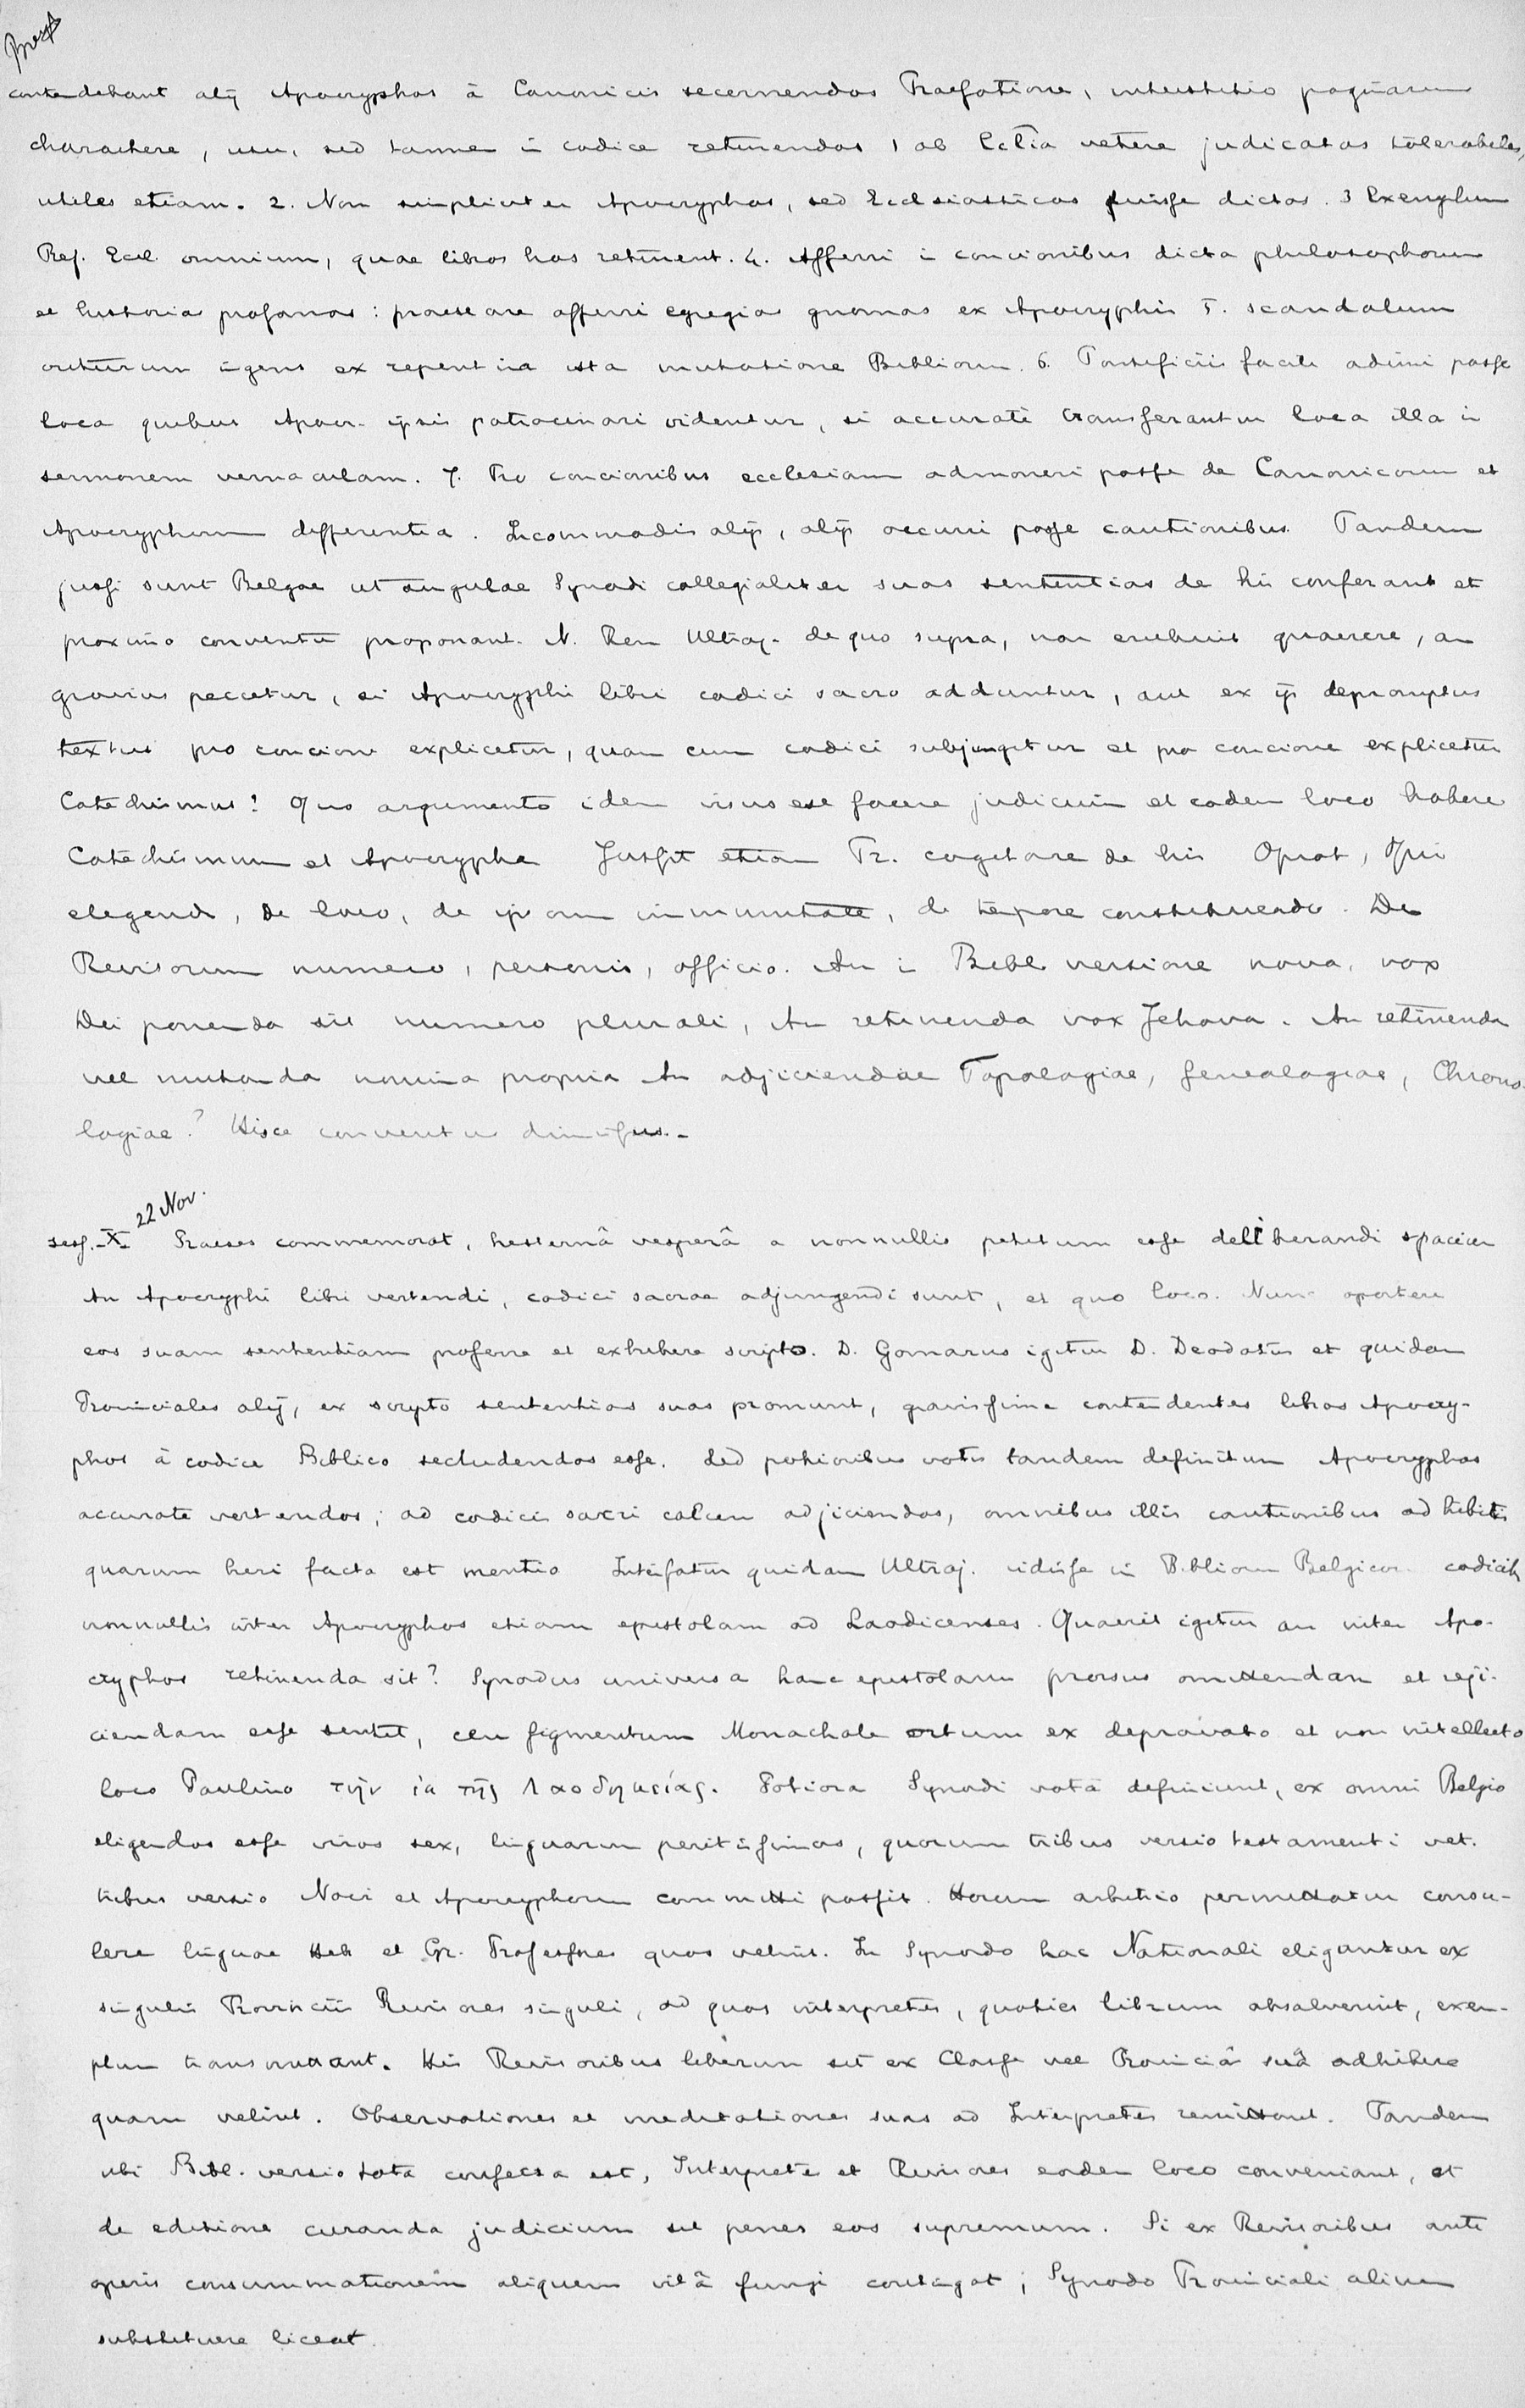 contendebant alij Apocryphos à Canonicis secernendos Praefatione, interstitio paginarum
charactere, usu, sed tamen in codice retinendos 1 ab Eclia vetere judicatos tolerabiles,
utiles etiam. 2. Non simpliciter Apocryphos, sed Ecclesiasticos fuisse dictos. 3 Exemplum
Ref. Eccl. omnium, quae libros hos retinent. 4. Afferri in concionibus dicta philosophorum
et historias profanas: praestare afferri egregias gnomas ex Apocryphis 5. scandalum
oriturum ingens ex repentina ista mutatione Bibliorum. 6. Pontificiis facile adimi posse
loca quibus Apocr. ipsis patrocinari videntur, si accuratè transferantur loca illa in
sermonem vernaculam. 7. Pro concionibus ecclesiam admoneri posse de Canonicorum et
Apocryphorum differentia. Incommodis alijs, alijs occurri posse cautionibus. Tandem
jussi sunt Belgae ut singulae Synodi collegialiter suas sententias de his conferant et
proximo conventu proponant. N. Rem Ultraj. de quo supra, non erubuit quaerere, an
gravius peccetur, si Apocryphi libri codici sacro addantur, aut ex ijs depromptus
textus pro concione explicetur, quam cum codici subjungitur et pro concione explicetur
Catechismus? Quo argumento idem visus est facere judicium et eodem loco habere
Catechismum et Apocrypha Jussit etiam Pr. cogitare de his Oprat, Qui
elegendi, de loco, de ipsorum immunitate, de tempore constituendo. De
Revisorum numero, personis, officio. An in Bibl. versione nova, vox
Dei ponenda sit numero plurali, An retinenda vox Jehova. An retinenda
vel mutanda nomina propria An adjiciendae Topologiae, Genealogiae, Chrono-
logiae? Hisce conventus dimissus.-
22 Nov.
sess. X Praeses commemorat, hesternâ vesperâ a nonnullis petitum esse deliberandi spacium
An Apocryphi libri vertendi, codici sacrae adjungendi sunt, et quo loco. Nunc oportere
eos suam sententiam proferre et exhibere scripto. D. Gomarus igitur D. Deodatus et quidam
Provinciales alij, ex scripto sententias suas promunt, gravissime contendentes libros Apocry-
phos à codice Biblico secludendos esse. Sed potioribus votis tandem definitum Apocryphos
accurate vertendos; ad codicis sacri calcem adjiciendos, omnibus illis cautionibus adhibitis
quarum heri facta est mentio Interfatur quidam Ultraj. vidisse in Bibliorum Belgicor. codicib
nonnullis inter Apocryphos etiam epistolam ad Laodicenses. Quaerit igitur an inter Apo-
cryphos retinenda sit? Synodus universa hanc epistolam prorsus omittendam et reji-
ciendam esse sentit, ceu figmentum Monachale ortum ex depravato et non intellecto
loco Paulino τὴν ἐκ τῆς Λαοδηκείας. Potiora Synodi vota definiunt, ex omni Belgio
eligendos esse viros sex, linguarum peritissimos, quorum tribus versio testamenti vet.
tribus versio Novi et Apocryphorum committi possit. Horum arbitrio permittatur consu-
lere linguae Heb et Gr. Professores quos velint. In Synodo hac Nationali eligantur ex
singulis Provinciis Revisores singuli, ad quos interpretes, quoties librum absolverint, exem-
plum transmittant. His Revisoribus liberum sit ex Classe vel Provinciâ suâ adhibere
quam velint. Observationes et meditationes suas ad Interpretes remittant. Tandem
ubi Bibl. versio tota confecta est, Interpretes et Revisores eodem loco conveniant, et
de editione curanda judicium sit penes eos supremum. Si ex Revisoribus ante
operis consummationem aliquem vitâ fungi contingat; Synodo Provinciali alium
substituere liceat.